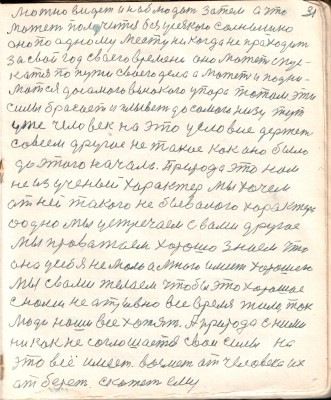 31
можно видет и наблюдат затем а это
может получится без уселкого солнышко
оно по одному месту никогда не праходит
за свой год своего времени оно может спус-
катся по пути своего дела а может и подни-
матся до самого высокого упора потом эти
силы бросает и плывет до самого низу тут
уже человек на это условие держит
совсем другое не такое как оно было
до этого начала. Природа это нам
не изученый характер мы хочем
от ней такого не бывалого характера
одно мы устречаем с вами другое
мы проважаем хорошо знаем что
она у себя не мало а много имеит хорошего
мы с вами желаем чтобы это хорошае
с нами не атрывно все время жило так
люди наши все хотят. А природа с ними
ни как не соглошается свои силы на
это всё имеет. возмет от человека их
отберет. скажет ему